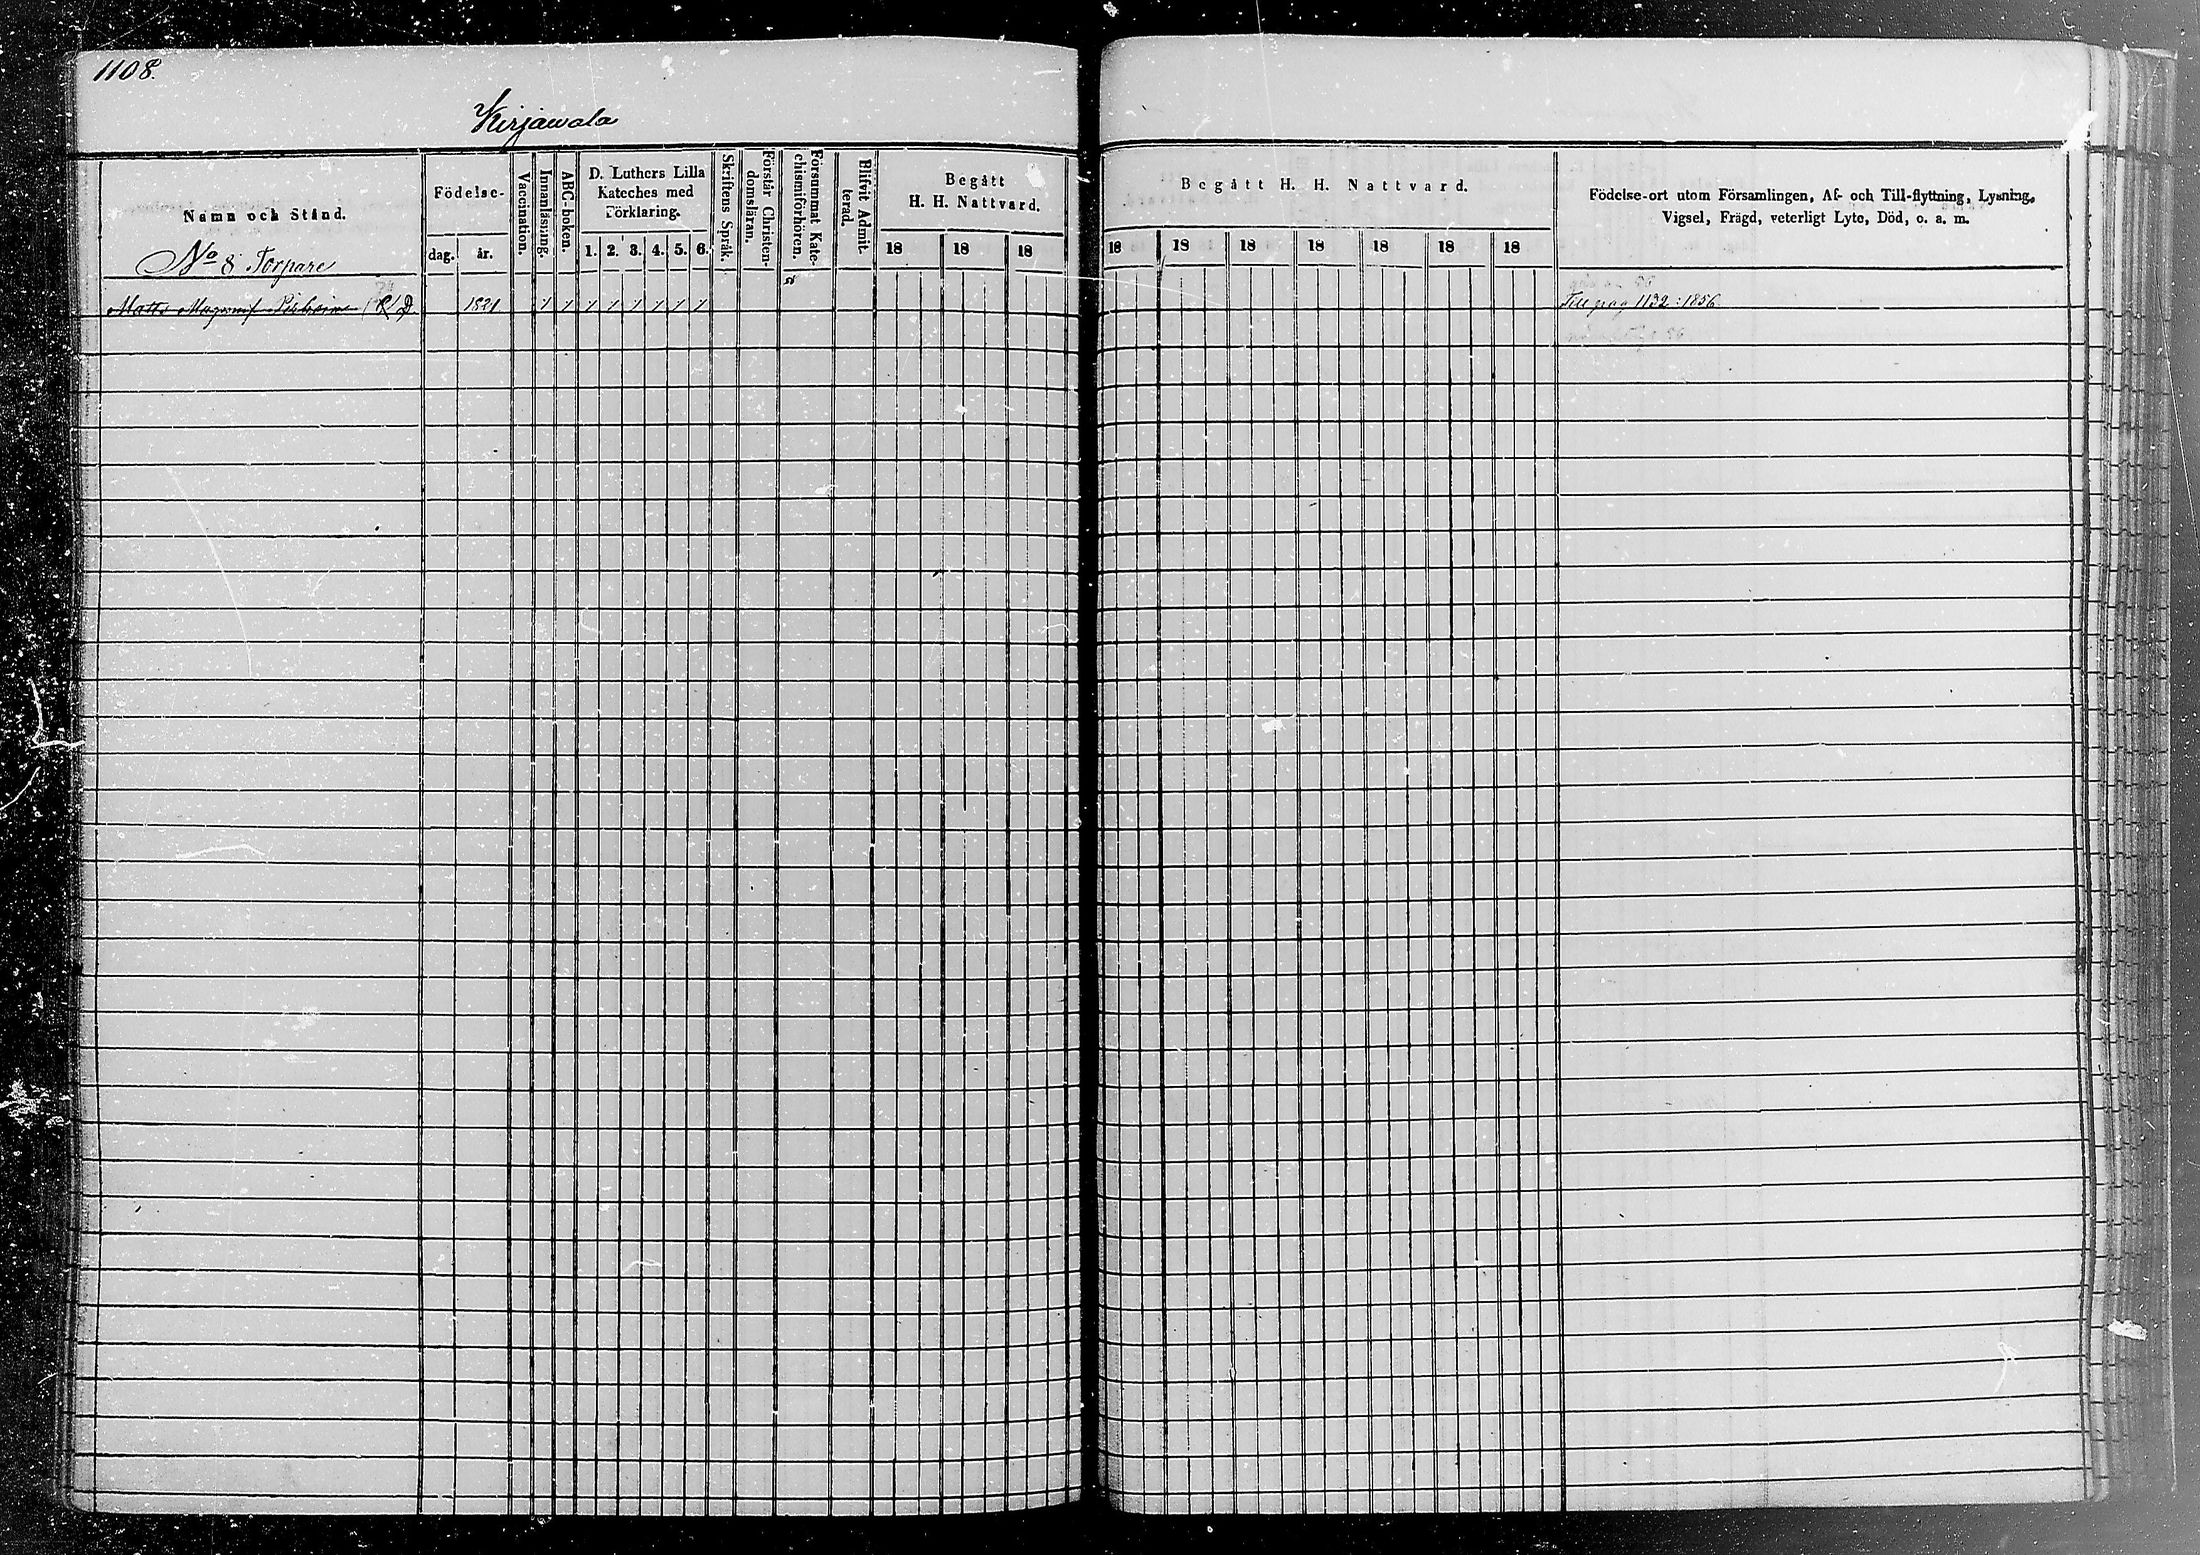 1108.
Kirjawala
Namn och Stånd.
Födelse-
dag.
år.
Vaccination.
Innanläsning.
ABC-boken.
D. Luthers Lilla
Kateches med
Förklaring.
1. 2. 3. 4. 5. 6.
Skriftens Språk.
Förstår Christen-
domsläran.
Försummat Kate-
chismiförhören.
Blifvit Admit-
terad.
Begått
H. H. Nattvard.
18 18 18
Begått H. H. Nattvard.
18 18 18 18 18 18 18
Födelse-ort utom Församlingen, Af- och Till-flyttning, Lysning,
Vigsel, Frägd, veterligt Lyte, Död, o. a. m.
No 8 Torpare
Matts 1821 Till pag 1132 : 1856